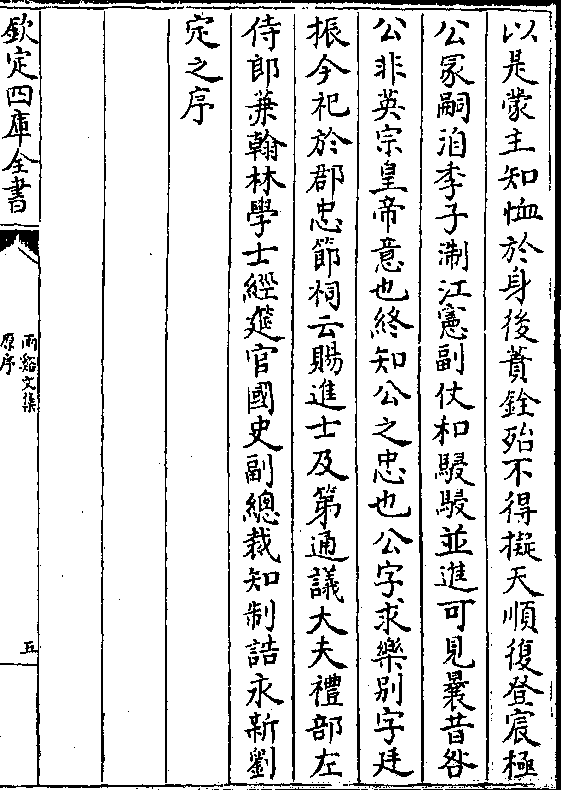 以是蒙主知恤於身後蕢銓殆不得擬天順復登宸極
公冢嗣洎季子淛江憲副仗和駸駸並進可見曩昔咎
公非英宗皇帝意也終知公之忠也公字求樂别字廷
振今祀於郡忠節祠云賜進士及第通議大夫禮部左
侍郎兼翰林學士經筵官國史副總裁知制誥永新劉
定之序
欽定四庫全書
兩谿文集
原序
五